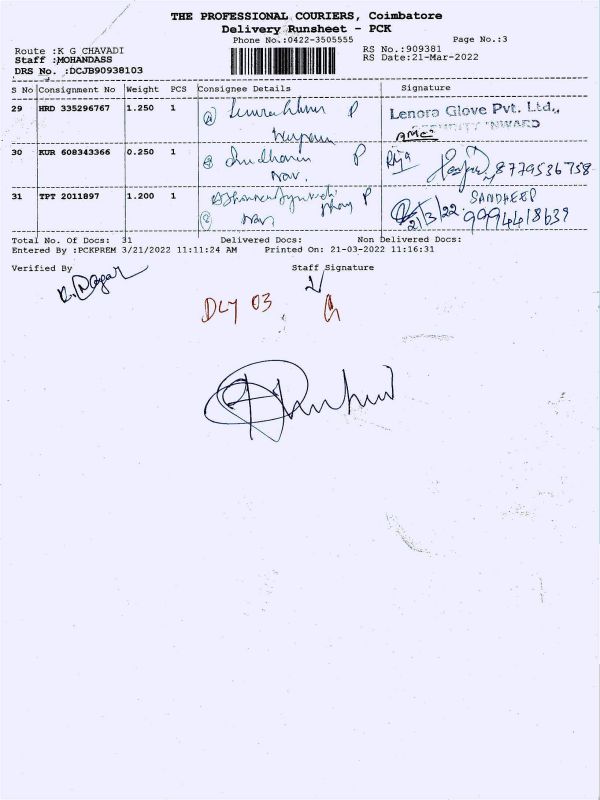 THE PROFESSIONAL COURIERS, Coimbatore
Delivery Runsheet - PCK
Phone No.:0422-3505555 Page No.:3
Route :K G CHAVADI RS No.:909381
Staff :MOHANDASS RS Date:21-Mar-2022
DRS No. :DCJB90938103
S No Consignment No Weight PCS Consignee Details Signature
29 HRD 335296767 1.250 1 P Lenora Glove Pvt. Ltd.,
SECURITY INWARD
30 KUR 608343366 0.250 1 P 8779536758
Nav.
31 TPT 2011897 1.200 1 P SANDHEEP
Nav 21/3/22 9994418639
Total No. Of Docs: 31 Delivered Docs: Non Delivered Docs:
Entered By :PCKPREM 3/21/2022 11:11:24 AM Printed On: 21-03-2022 11:16:31
Verified By Staff Signature
DLY 03